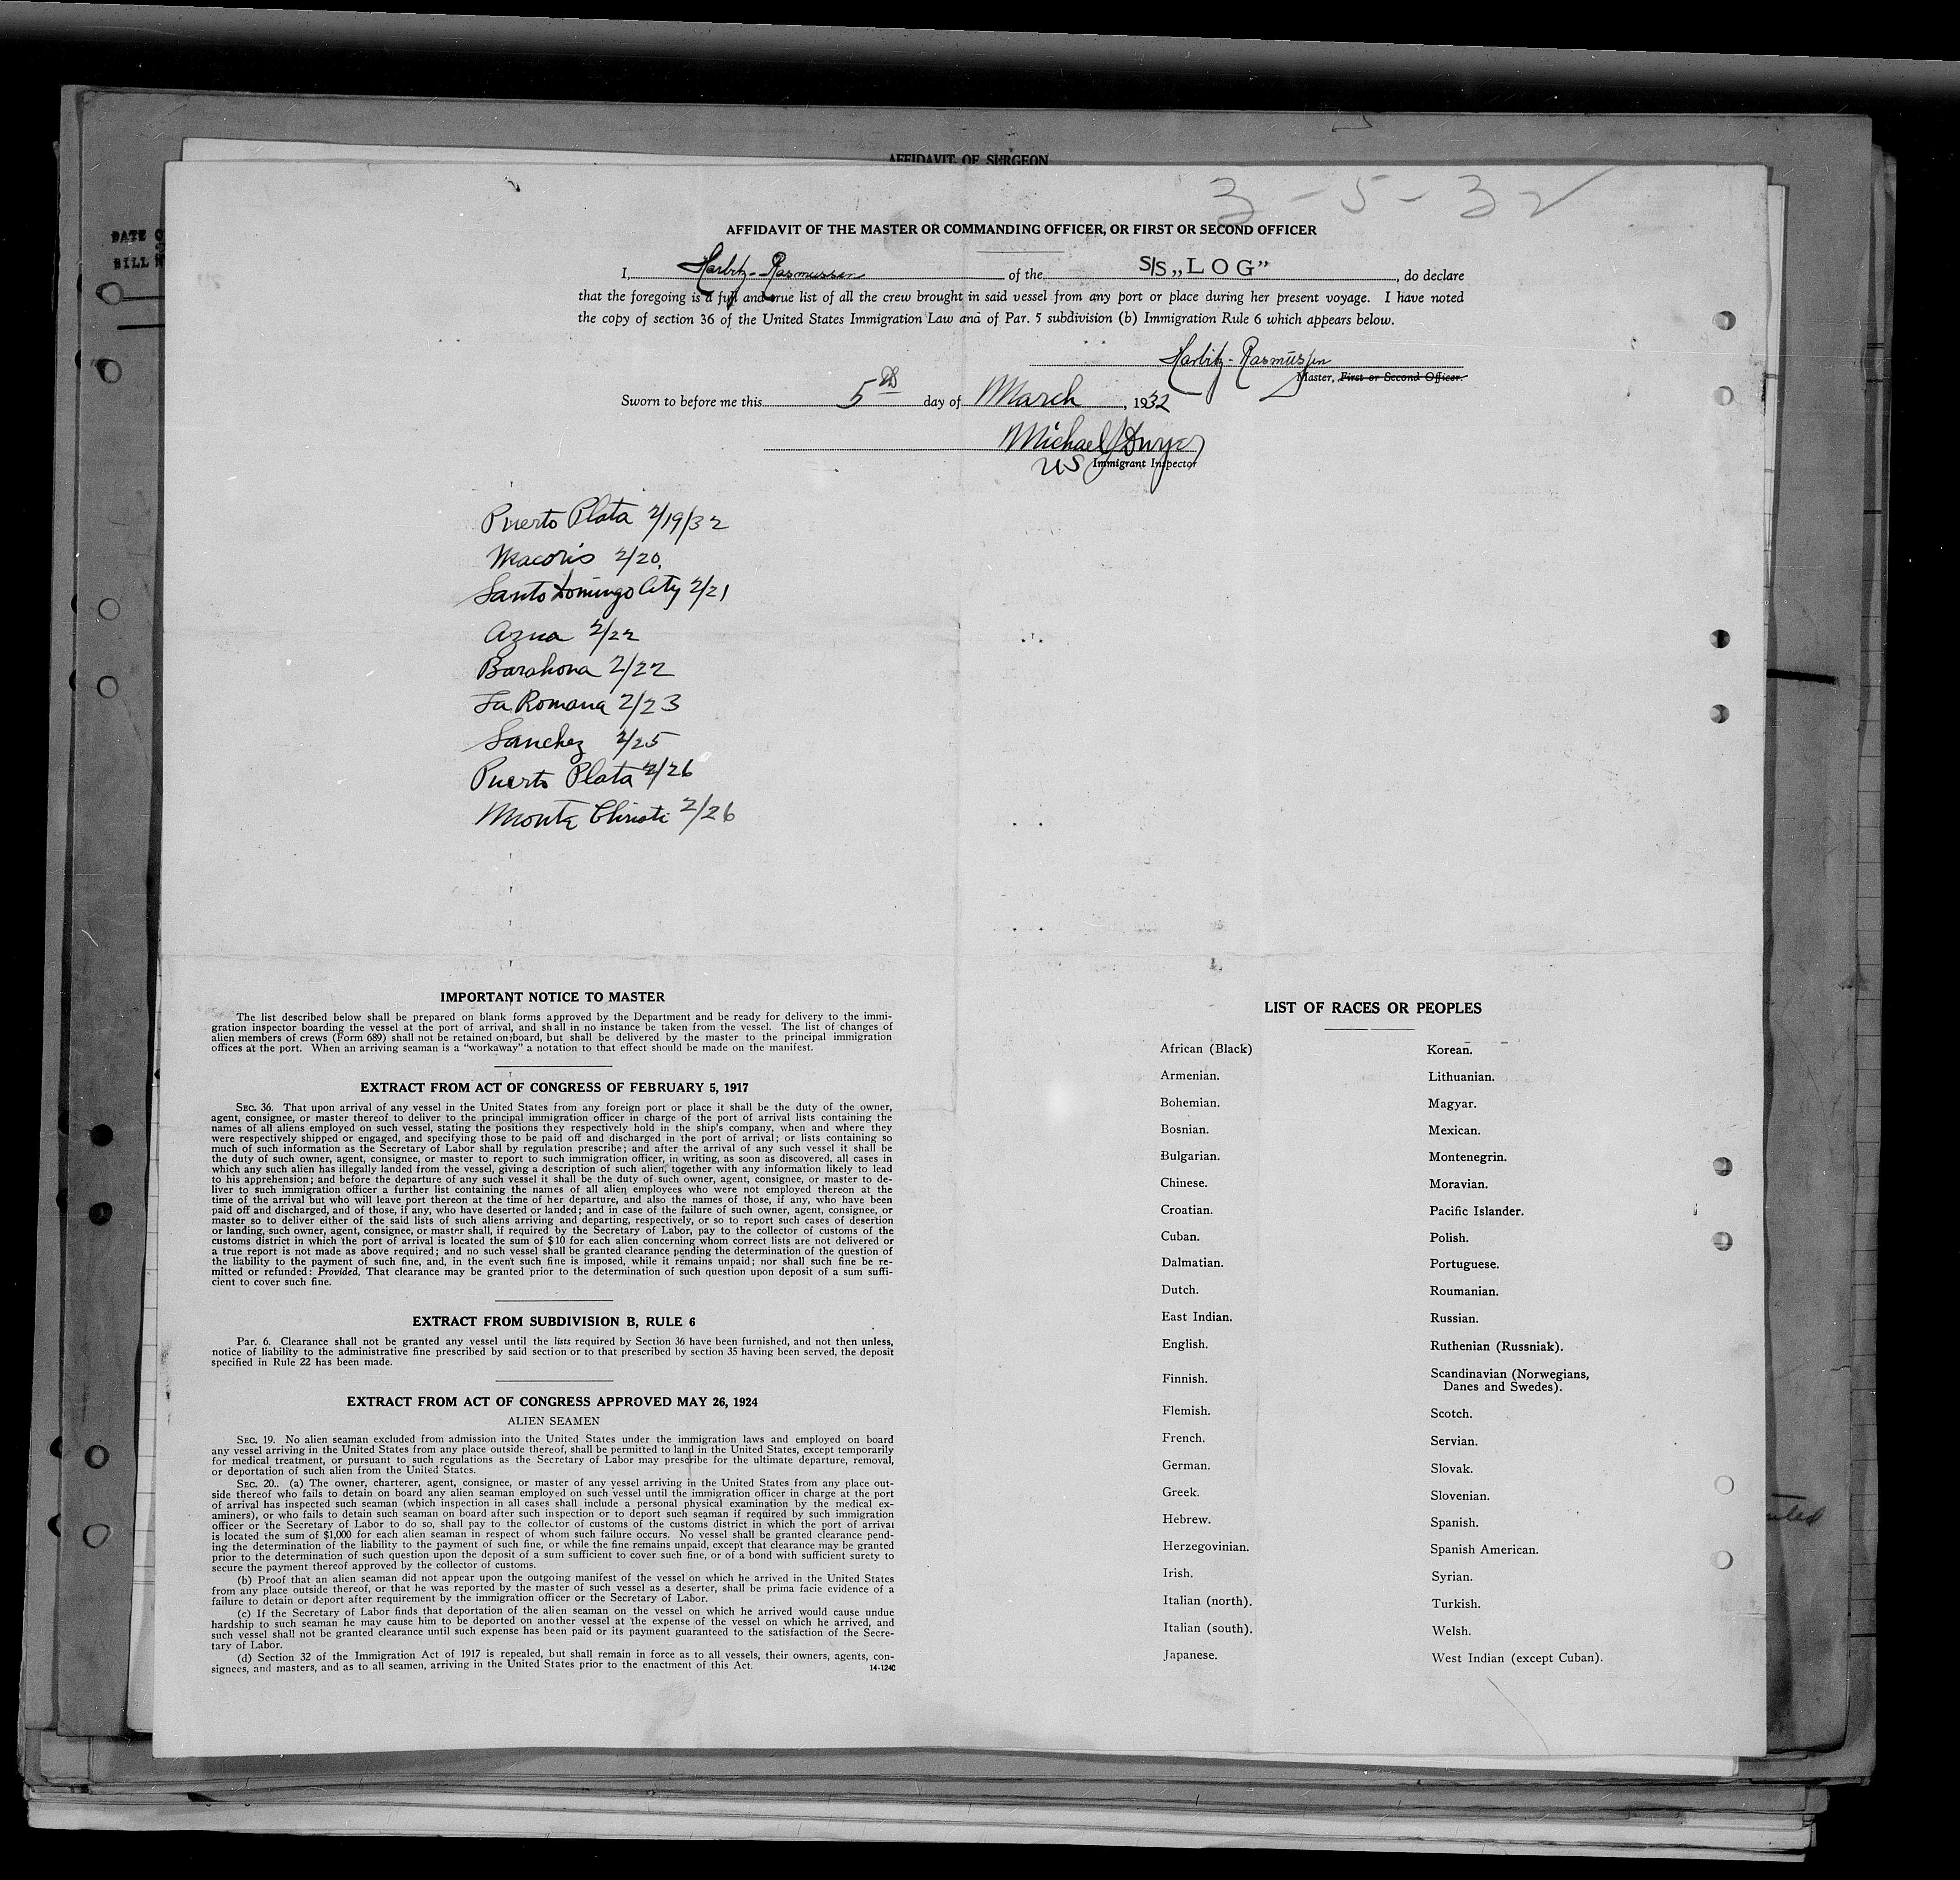 AFFIDAVIT OF SURGEON
3 - 5 - 32
DATE O
BILL N
AFFIDAVIT OF THE MASTER OR COMMANDING OFFICER, OR FIRST OR SECOND OFFICER
I, Harbitz-Rasmussen of the S/S „LOG”, do declare
that the foregoing is a full and true list of all the crew brought in said vessel from any port or place during her present voyage. I have noted
the copy of section 36 of the United States Immigration Law and of Par. 5 subdivision (b) Immigration Rule 6 which appears below.
Harbitz-Rasmussen
Master, First or Second Officer.
Sworn to before me this 5th day of March, 1932
Michael J Dwyer
US Immigrant Inspector
Puerto Plata 2/19/32
Macoris 2/20
Santo Domingo City 2/21
Azua 2/22
Barahona 2/22
La Romana 2/23
Sanchez 2/25
Puerto Plata 2/26
Monte Christi 2/26
IMPORTANT NOTICE TO MASTER
The list described below shall be prepared on blank forms approved by the Department and be ready for delivery to the immi-
gration inspector boarding the vessel at the port of arrival, and shall in no instance be taken from the vessel. The list of changes of
alien members of crews (Form 689) shall not be retained on board, but shall be delivered by the master to the principal immigration
offices at the port. When an arriving seaman is a “workaway” a notation to that effect should be made on the manifest.
EXTRACT FROM ACT OF CONGRESS OF FEBRUARY 5, 1917
SEC. 36. That upon arrival of any vessel in the United States from any foreign port or place it shall be the duty of the owner,
agent, consignee, or master thereof to deliver to the principal immigration officer in charge of the port of arrival lists containing the
names of all aliens employed on such vessel, stating the positions they respectively hold in the ship's company, when and where they
were respectively shipped or engaged, and specifying those to be paid off and discharged in the port of arrival; or lists containing so
much of such information as the Secretary of Labor shall by regulation prescribe; and after the arrival of any such vessel it shall be
the duty of such owner, agent, consignee, or master to report to such immigration officer, in writing, as soon as discovered, all cases in
which any such alien has illegally landed from the vessel, giving a description of such alien, together with any information likely to lead
to his apprehension; and before the departure of any such vessel it shall be the duty of such owner, agent, consignee, or master to de-
liver to such immigration officer a further list containing the names of all alien employees who were not employed thereon at the
time of the arrival but who will leave port thereon at the time of her departure, and also the names of those, if any, who have been
paid off and discharged, and of those, if any, who have deserted or landed; and in case of the failure of such owner, agent, consignee, or
master so to deliver either of the said lists of such aliens arriving and departing, respectively, or so to report such cases of desertion
or landing, such owner, agent, consignee, or master shall, if required by the Secretary of Labor, pay to the collector of customs of the
customs district in which the port of arrival is located the sum of $10 for each alien concerning whom correct lists are not delivered or
a true report is not made as above required; and no such vessel shall be granted clearance pending the determination of the question of
the liability to the payment of such fine, and, in the event such fine is imposed, while it remains unpaid; nor shall such fine be re-
mitted or refunded: Provided, That clearance may be granted prior to the determination of such question upon deposit of a sum suffi-
cient to cover such fine.
EXTRACT FROM SUBDIVISION B, RULE 6
Par. 6. Clearance shall not be granted any vessel until the lists required by Section 36 have been furnished, and not then unless,
notice of liability to the administrative fine prescribed by said section or to that prescribed by section 35 having been served, the deposit
specified in Rule 22 has been made.
EXTRACT FROM ACT OF CONGRESS APPROVED MAY 26, 1924
ALIEN SEAMEN
SEC. 19. No alien seaman excluded from admission into the United States under the immigration laws and employed on board
any vessel arriving in the United States from any place outside thereof, shall be permitted to land in the United States, except temporarily
for medical treatment, or pursuant to such regulations as the Secretary of Labor may prescribe for the ultimate departure, removal,
or deportation of such alien from the United States.
SEC. 20. (a) The owner, charterer, agent, consignee, or master of any vessel arriving in the United States from any place out-
side thereof who fails to detain on board any alien seaman employed on such vessel until the immigration officer in charge at the port
of arrival has inspected such seaman (which inspection in all cases shall include a personal physical examination by the medical ex-
aminers), or who fails to detain such seaman on board after such inspection or to deport such seaman if required by such immigration
officer or the Secretary of Labor to do so, shall pay to the collector of customs of the customs district in which the port of arrival
is located the sum of $1,000 for each alien seaman in respect of whom such failure occurs. No vessel shall be granted clearance pend-
ing the determination of the liability to the payment of such fine, or while the fine remains unpaid, except that clearance may be granted
prior to the determination of such question upon the deposit of a sum sufficient to cover such fine, or of a bond with sufficient surety to
secure the payment thereof approved by the collector of customs.
(b) Proof that an alien seaman did not appear upon the outgoing manifest of the vessel on which he arrived in the United States
from any place outside thereof, or that he was reported by the master of such vessel as a deserter, shall be prima facie evidence of a
failure to detain or deport after requirement by the immigration officer or the Secretary of Labor.
(c) If the Secretary of Labor finds that deportation of the alien seaman on the vessel on which he arrived would cause undue
hardship to such seaman he may cause him to be deported on another vessel at the expense of the vessel on which he arrived, and
such vessel shall not be granted clearance until such expense has been paid or its payment guaranteed to the satisfaction of the Secre-
tary of Labor.
(d) Section 32 of the Immigration Act of 1917 is repealed, but shall remain in force as to all vessels, their owners, agents, con-
signees, and masters, and as to all seamen, arriving in the United States prior to the enactment of this Act.
14-1240
LIST OF RACES OR PEOPLES
African (Black)
Armenian.
Bohemian.
Bosnian.
Bulgarian.
Chinese.
Croatian.
Cuban.
Dalmatian.
Dutch.
East Indian.
English.
Finnish.
Flemish.
French.
German.
Greek.
Hebrew.
Herzegovinian.
Irish.
Italian (north).
Italian (south).
Japanese.
Korean.
Lithuanian.
Magyar.
Mexican.
Montenegrin.
Moravian.
Pacific Islander.
Polish.
Portuguese.
Roumanian.
Russian.
Ruthenian (Russniak).
Scandinavian (Norwegians,
Danes and Swedes).
Scotch.
Servian.
Slovak.
Slovenian.
Spanish.
Spanish American.
Syrian.
Turkish.
Welsh.
West Indian (except Cuban).